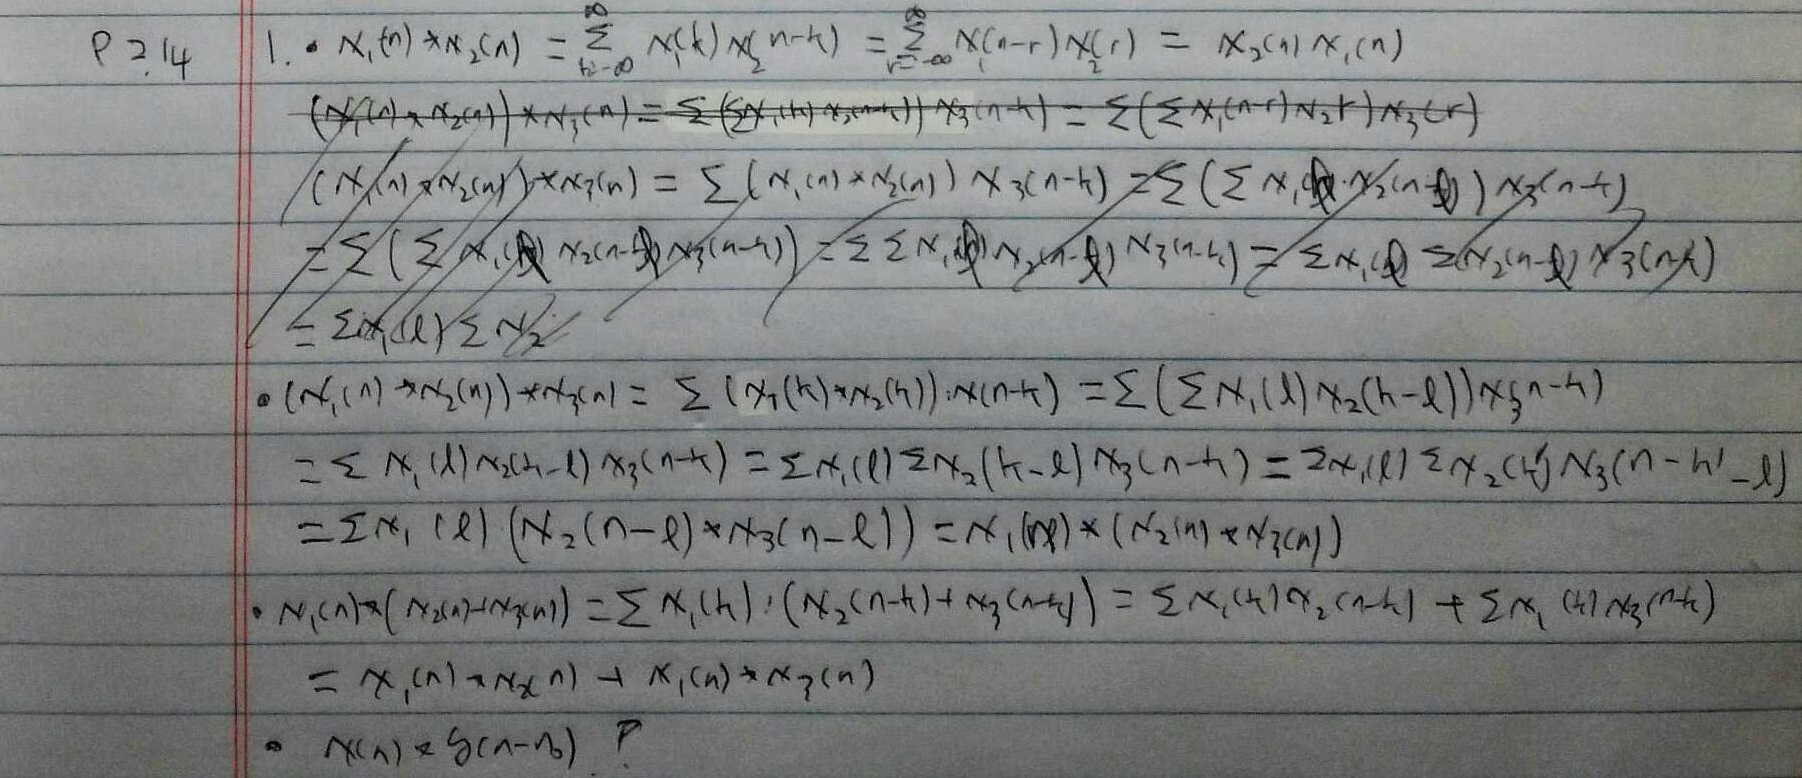 P 2.14 1. • x₁(n) * x₂(n) = Σ_{k=-∞}^{∞} x₁(k) x₂(n-k) = Σ_{r=-∞}^{∞} x₁(n-r) x₂(r) = x₂(n) x₁(n)
(x₁(n) * x₂(n)) * x₃(n) = Σ (Σx₁(k) x₂(n-k)) x₃(n-k) = Σ(Σx₁(n-r) x₂r) x₃(r)
(x₁(n) * x₂(n)) * x₃(n) = Σ (x₁(n) * x₂(n)) x₃(n-k) = Σ (Σ x₁(l) · x₂(n-l)) x₃(n-k)
= Σ (Σ x₁(l) x₂(n-l) x₃(n-k)) = Σ Σ x₁(l) x₂(n-l) x₃(n-k) = Σx₁(l) Σx₂(n-l) x₃(n-k)
= Σx₁(l) Σ x₂
• (x₁(n) * x₂(n)) * x₃(n) = Σ (x₁(k) * x₂(k)) · x(n-k) = Σ (Σ x₁(l) x₂(k-l)) x₃(n-k)
= Σ x₁(l) x₂(k-l) x₃(n-k) = Σx₁(l) Σx₂(k-l) x₃(n-k) = Σx₁(l) Σx₂(k') x₃(n-k'-l)
= Σx₁(l) (x₂(n-l) * x₃(n-l)) = x₁(n) * (x₂(n) * x₃(n))
• x₁(n) * (x₂(n) + x₃(n)) = Σ x₁(k) · (x₂(n-k) + x₃(n-k)) = Σ x₁(k) x₂(n-k) + Σx₁(k) x₃(n-k)
= x₁(n) * x₂(n) + x₁(n) * x₃(n)
• x(n) * δ(n-n₀) ?